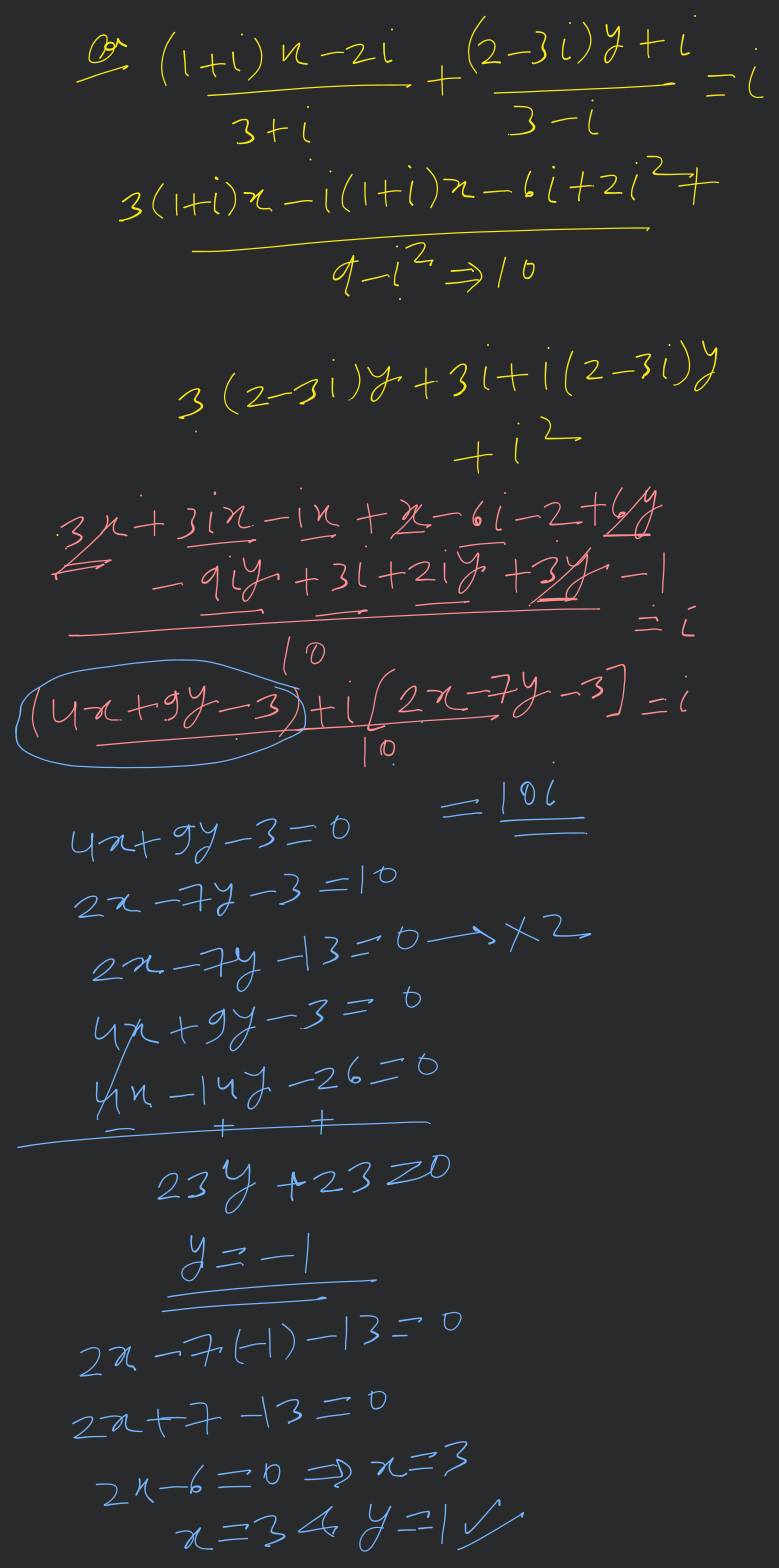 Q (1+i)x-2i/3+i + (2-3i)y+i/3-i = i
3(1+i)x-i(1+i)x-6i+2i²+
9-i² ⇒ 10
3(2-3i)y+3i+i(2-3i)y
+i²
3x+3ix-ix+x-6i-2+6y
-9iy+3i+2iy+3y-1
= i
10
(4x+9y-3)+i[2x-7y-3] = i
10
= 10i
4x+9y-3=0
2x-7y-3=10
2x-7y-13=0 → ×2
4x+9y-3=0
4x-14y-26=0
- + +
23y+23=0
y=-1
2x-7(-1)-13=0
2x+7-13=0
2x-6=0 ⇒ x=3
x=3 & y=-1 ✓